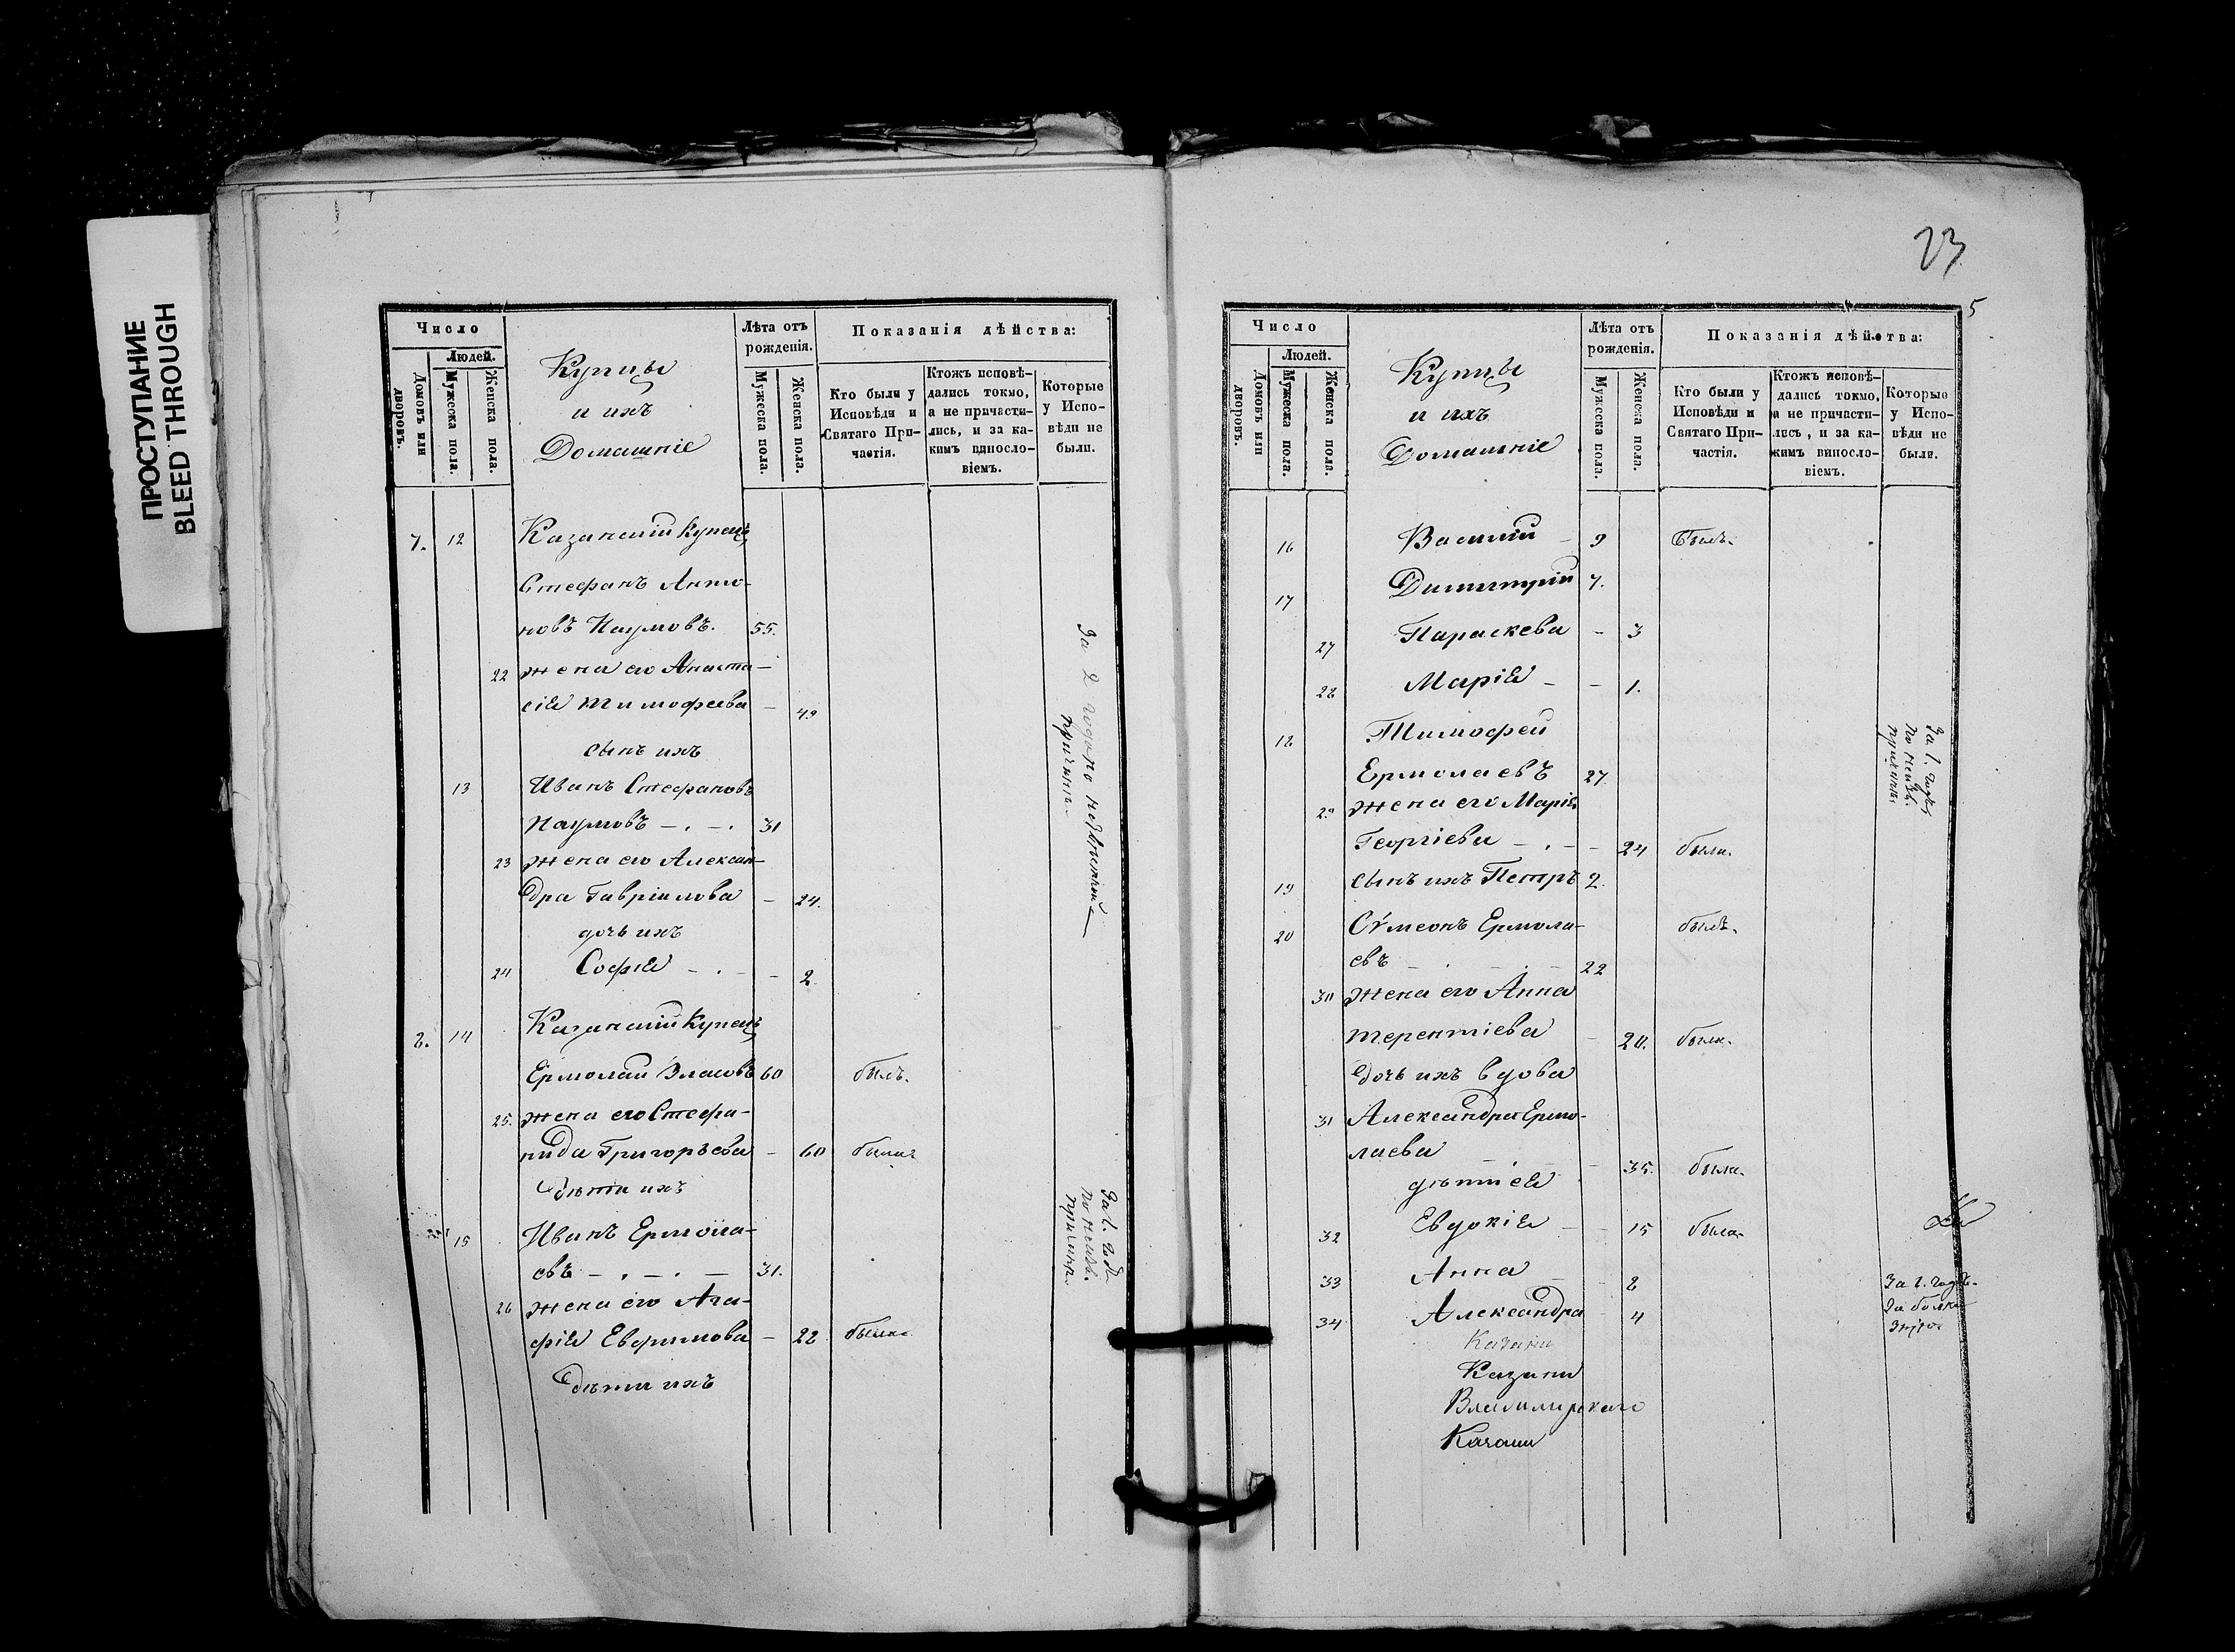 ПРОСТУПАНИЕ
BLEED THROUGH
Число
Людей.
Домовъ или дворовъ.
Мужеска пола.
Женска пола.
Купцы
и ихъ
Домашніе
Лѣта отъ рожденія.
Мужеска пола.
Женска пола.
Показанія дѣйства:
Кто были у Исповѣди и Святаго Причастія.
Ктожъ исповѣдались токмо, а не причастились, и за какимъ винословіемъ.
Которые у Исповѣди не были.
7. 12 Казанскій Купецъ
Стефанъ Анто-
новъ Наумовъ. 55.
22 жена его Анаста-
сія Тимофеева - 49
сынъ ихъ
13 Иванъ Стефановъ
Наумовъ 31
23 жена его Алексан-
дра Гавріилова - 24.
дочь ихъ
24 Софія - 2
За 2 года по нерачитель
причинѣ.
8. 14 Казанскій Купецъ
Ермолай Власовъ 60 былъ.
25. жена его Стефа-
нида Григорьева - 60 была
Дѣти ихъ
15 Иванъ Ермола-
евъ 31.
За 1. год
по неизв.
причинѣ.
26 жена его Ага-
фія Евфимова - 28 была
Дѣти ихъ
23
5
Число
Людей.
Домовъ или дворовъ.
Мужеска пола.
Женска пола.
Купцы
и ихъ
Домашніе
Лѣта отъ рожденія.
Мужеска пола.
Женска пола.
Показанія дѣйства:
Кто были у Исповѣди и Святаго Причастія.
Ктожъ исповѣдались токмо, а не причастились, и за какимъ винословіемъ.
Которые у Исповѣди не были.
16 Василій - 9 Былъ.
17 Димитрій 7.
27 Параскева - 3
28 Марія - - 1.
18 Тимофей
Ермолаевъ 27
За 1. годъ
по неизв.
причинѣ.
29 жена его Марія
Георгіева - 24 была.
19 сынъ ихъ Петръ 2.
20 Сѵмеонъ Ермола- былъ.
евъ 22
30 жена его Анна
Терентіева - 20. была.
Дочь ихъ вдова
31 Александра Ермо-
лаева - 35. была.
дѣти ея
32 Евдокія - 15 была
33 Анна - 8
34 Александра 4
За 1. годъ.
Казани
Казани
Владимирскаго
Казани